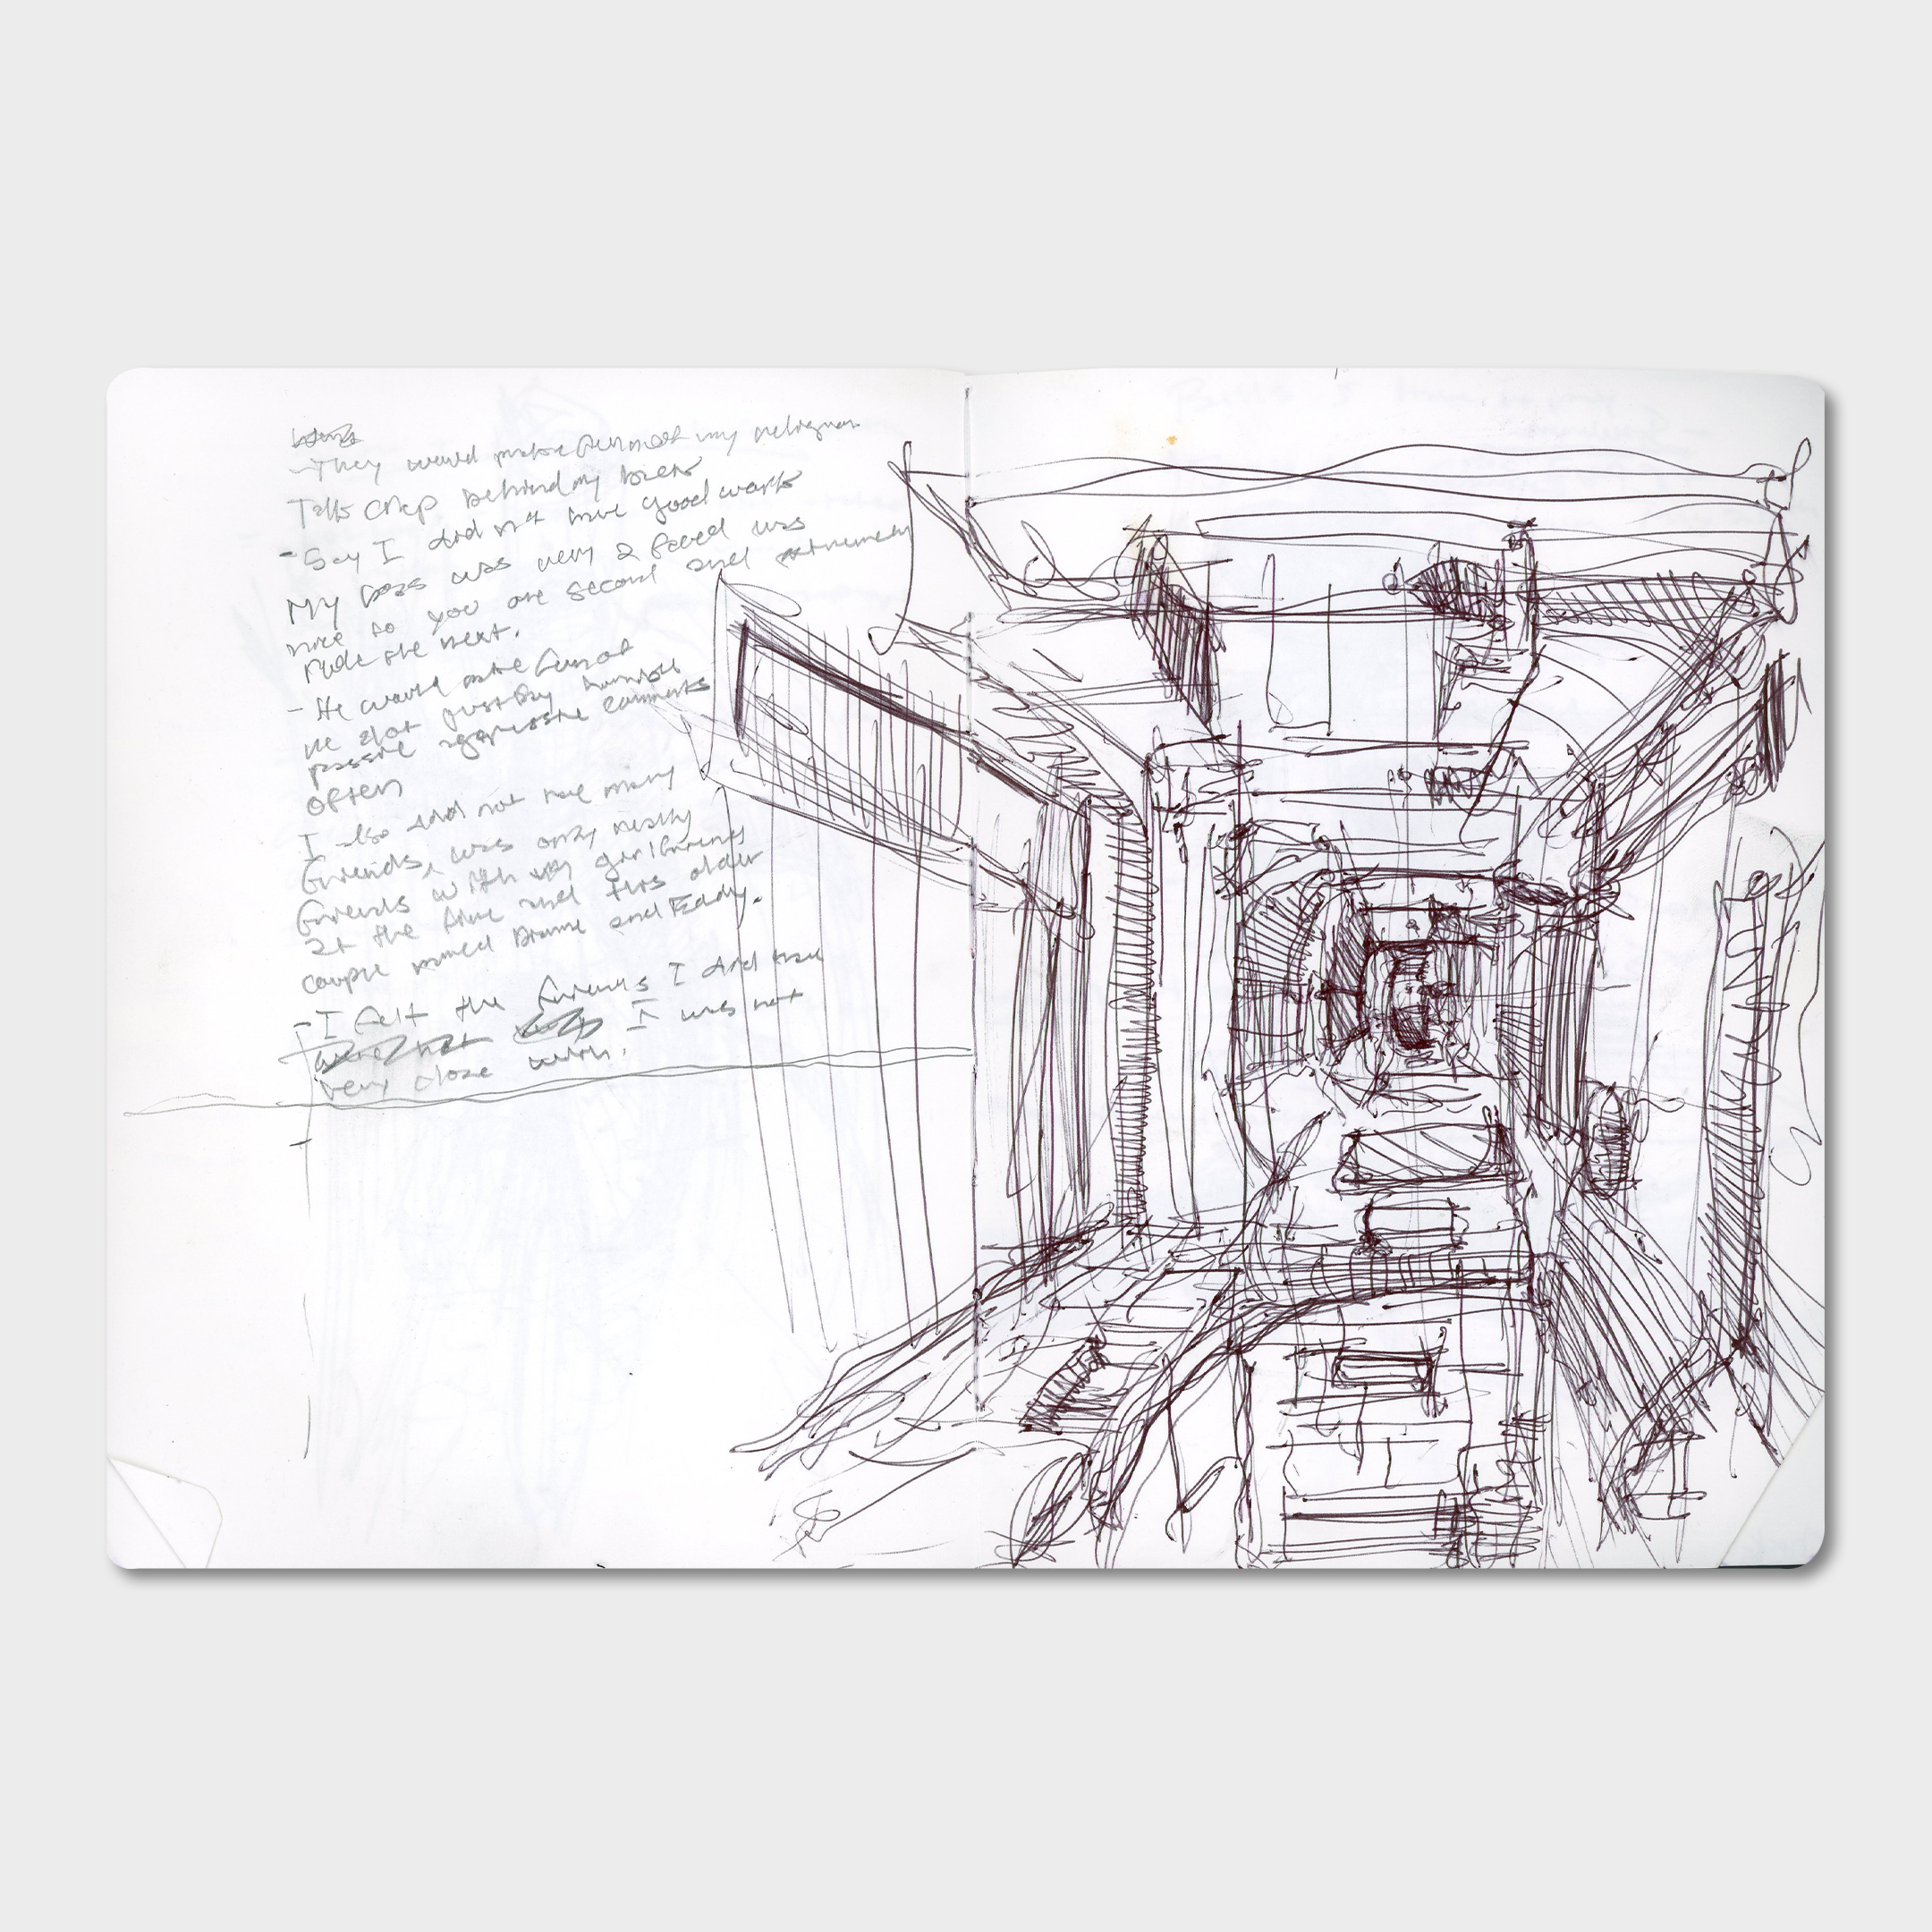 - They would make fun of my religion
Talk crap behind my back
- Say I did not have good work
My boss was very 2 faced was
nice to you one second and extremely
rude the next.
- He would make fun of
me and just say
passive aggressive comments
often
I also did not have many
friends, was only really
friends with my girlfriend
at the time and this older
couple named and Eddy.
- I felt the friends I did have
were not I was not
very close with.